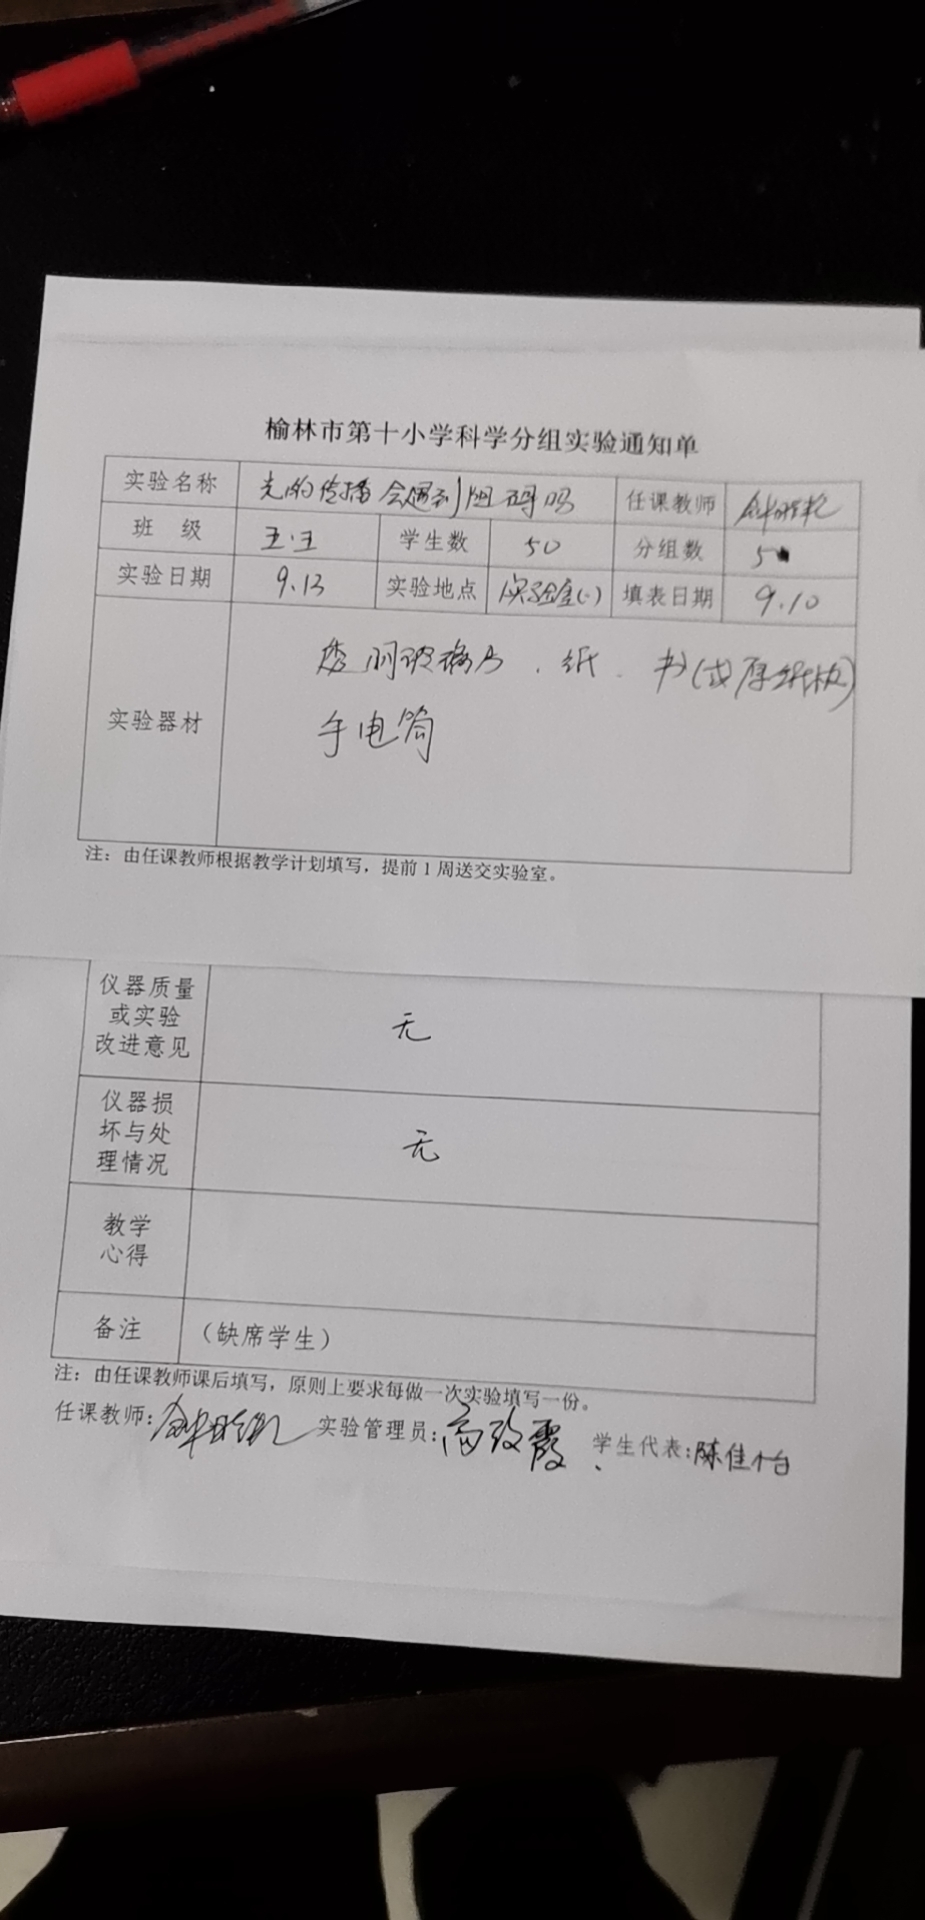 榆林市第十小学科学分组实验通知单
实验名称 光的传播会遇到阻碍吗 任课教师
班 级 五.五 学生数 50 分组数 5
实验日期 9.13 实验地点 实验室(一) 填表日期 9.10
实验器材 透明玻璃片、纸、书(或厚纸板)
手电筒
注：由任课教师根据教学计划填写，提前1周送交实验室。
仪器质量
或实验
改进意见 无
仪器损
坏与处
理情况 无
教学
心得
备注 （缺席学生）
注：由任课教师课后填写，原则上要求每做一次实验填写一份。
任课教师: 实验管理员:高改霞 学生代表:陈佳怡